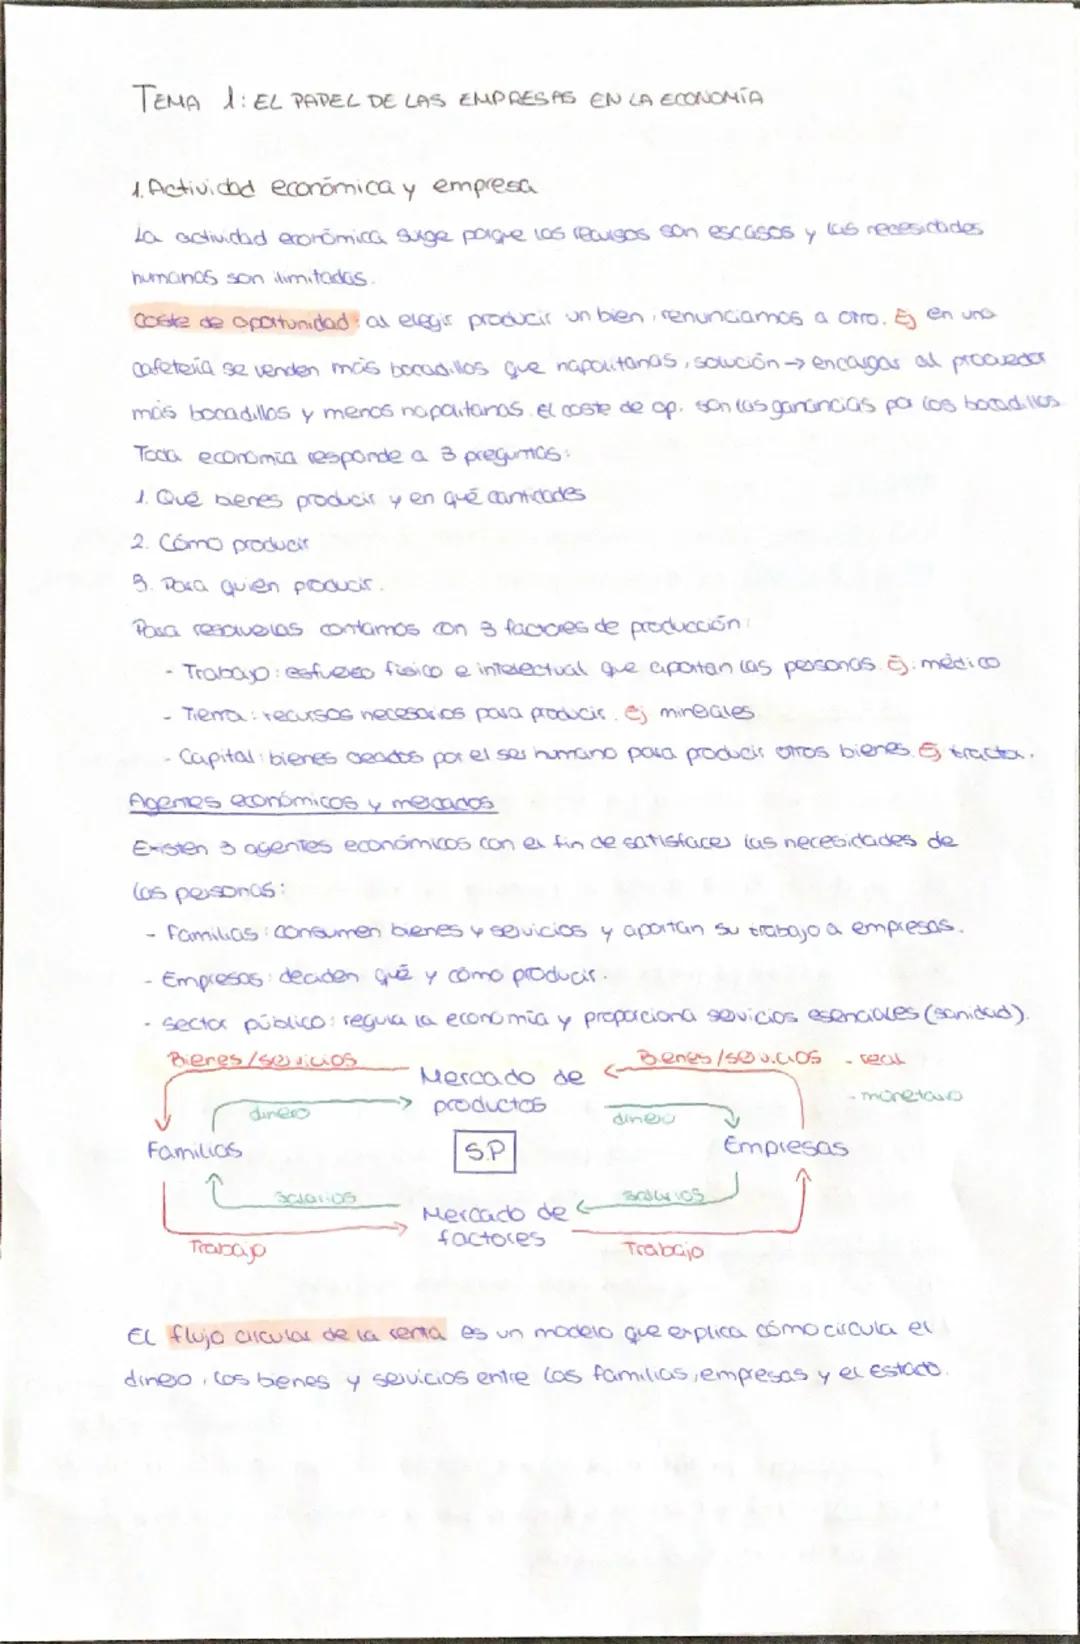 TEMA 1: EL PAPEL DE LAS EMPRESAS EN LA ECONOMÍA
1. Actividad económica y empresa
La actividad económica surge porque los recursos son escasos y las necesidades
humanas son ilimitadas.
Coste de oportunidad: al elegir producir un bien, renunciamos a otro. Ej en una
cafetería se venden más bocadillos que napolitanas, solución → encargar al proveedor
más bocadillos y menos napolitanas. El coste de op. son las ganancias por los bocadillos
Toda economía responde a 3 preguntas:
1. Qué bienes producir y en qué cantidades
2. Cómo producir
3. Para quien producir.
Para resolverlas contamos con 3 factores de producción:
- Trabajo: esfuerzo físico e intelectual que aportan las personas. Ej. médico
- Tierra: recursos necesarios para producir. Ej minerales
- Capital: bienes creados por el ser humano para producir otros bienes. Ej tractor.
Agentes económicos y mercados
Existen 3 agentes económicos con el fin de satisfacer las necesidades de
las personas:
- Familias: consumen bienes y servicios y aportan su trabajo a empresas.
- Empresas: deciden qué y cómo producir.
- Sector público: regula la economía y proporciona servicios esenciales (sanidad).
Bienes/servicios Bienes/servicios - real
Mercado de
productos
- monetario
dinero dinero
Familias S.P Empresas
salarios salarios
Mercado de
factores
Trabajo Trabajo
El flujo circular de la renta es un modelo que explica cómo circula el
dinero, los bienes y servicios entre las familias, empresas y el estado.